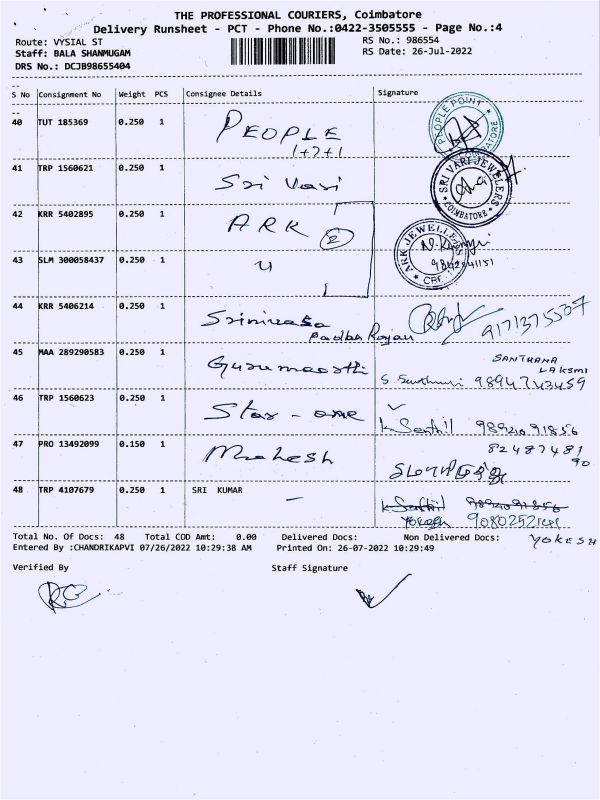 THE PROFESSIONAL COURIERS, Coimbatore
Delivery Runsheet - PCT - Phone No.:0422-3505555 - Page No.:4
Route: VYSIAL ST
RS No.: 986554
Staff: BALA SHANMUGAM
RS Date: 26-Jul-2022
DRS No.: DCJB98655404
S No Consignment No Weight PCS Consignee Details Signature
40 TUT 185369 0.250 1 PEOPLE
1+7+1
PEOPLE POINT
41 TRP 1560621 0.250 1 Sri Vari
SRI VARI JEWELLERS
COIMBATORE
42 KRR 5402895 0.250 1 ARK
2
ARK JEWELLERS
CBE
43 SLM 300058437 0.250 1 u
44 KRR 5406214 0.250 1 Srinivasa
45 MAA 289290583 0.250 1 Gurumoorthi
SANTHANA
LAKSMI
9894743459
46 TRP 1560623 0.250 1 Star - one
K Senthil
47 PRO 13492099 0.150 1 Mahesh
82487481
90
48 TRP 4107679 0.250 1 SRI KUMAR -
Total No. Of Docs: 48 Total COD Amt: 0.00 Delivered Docs: Non Delivered Docs:
YOKESH
Entered By :CHANDRIKAPVI 07/26/2022 10:29:38 AM Printed On: 26-07-2022 10:29:49
Verified By Staff Signature